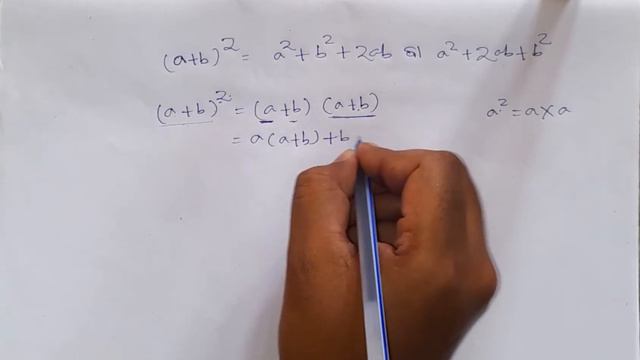 (a+b)² = a²+b²+2ab বা a²+2ab+b²
(a+b)² = (a+b) (a+b) a² = a×a
= a(a+b)+b